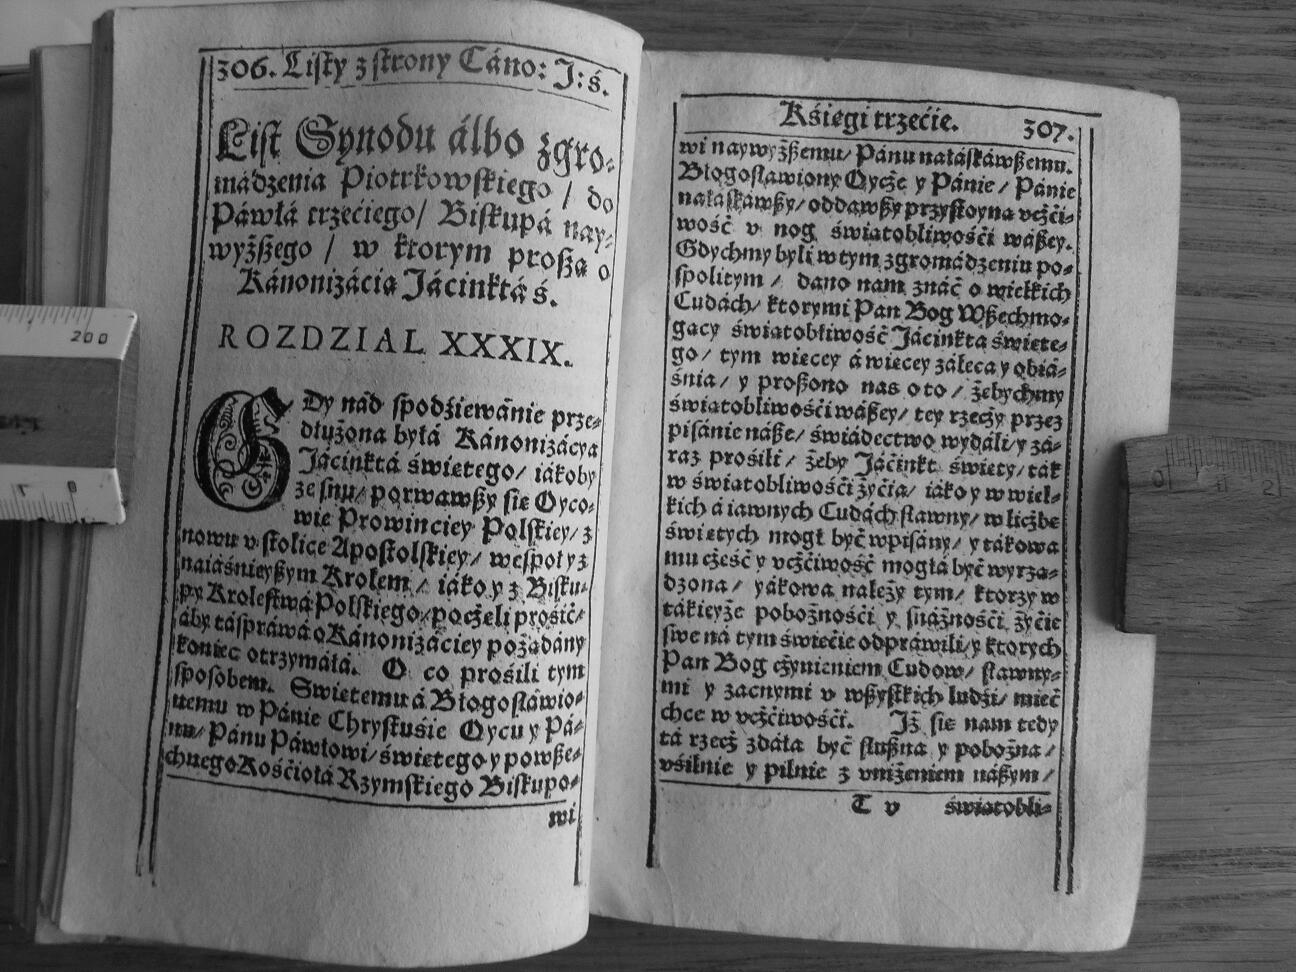 306. Listy z strony Cáno: J: ś.
List Synodu álbo zgro-
mádzenia Piotrkowskiego / do
Páwłá trzećiego / Biskupá nay-
wyższego / w ktorym proszą o
Kánonizácią Jácinktá ś.
ROZDZIAL XXXIX.
GDy nád spodźiewánie prze-
dłużona byłá Kánonizácya
Jácinktá świętego / iákoby
ze snu / porwawszy się Oyco-
wie Prowinciey Polskiey / z
nowu v stolice Apostolskiey / wespoł y z
naiáśnieyszym Krolem / iáko y z Bisku-
py Krolestwá Polskiego / poczęli prośić /
áby tá spráwá o Kánonizáciey pożądány
koniec otrzymáłá. O co prośili tym
sposobem. Swiętemu á Błogosłáwio-
nemu w Pánie Chrystuśie Oycu y Pá-
nu / Pánu Páwłowi / świętego y powsze-
chnego Kośćiołá Rzymskiego Biskupo-
wi
Kśięgi trzećie. 307.
wi naywyższemu / Pánu nałáskáwszemu.
Błogosłáwiony Oycze y Pánie / Pánie
nałáskáwszy / oddawszy przystoyną vczći-
wość v nog świątobliwośći wászey.
Gdychmy byli w tym zgromádzeniu po-
spolitym / dano nam znáć o wielkich
Cudách / ktorymi Pan Bog Wszechmo-
gący świątobliwość Jácinktá święte-
go / tym więcey á więcey záleca y obiá-
śnia / y proszono nas o to / żebychmy
świątobliwośći wászey / tey rzeczy przez
pisánie násze / świádectwo wydáli / y zá-
raz prośili / żeby Jácinkt święty / ták
w świątobliwośći żyćia / iáko y w wiel-
kich á iáwnych Cudách sławny / w liczbę
świętych mogł być wpisány / y tákowa
mu cześć y vczćiwość mogłá być wyrzą-
dzona / yákowa należy tym / ktorzy w
tákieyże pobożnośći y snáżnośći żyćie
swe ná tym świećie odpráwili / y ktorych
Pan Bog czynieniem Cudow / sławny-
mi y zacnymi v wszystkich ludźi / mieć
chce w vczćiwośći. Jż się nam tedy
tá rzecz zdáłá być słuszna y pobożna /
vśilnie y pilnie z vniżeniem nászym /
T v świątobli-